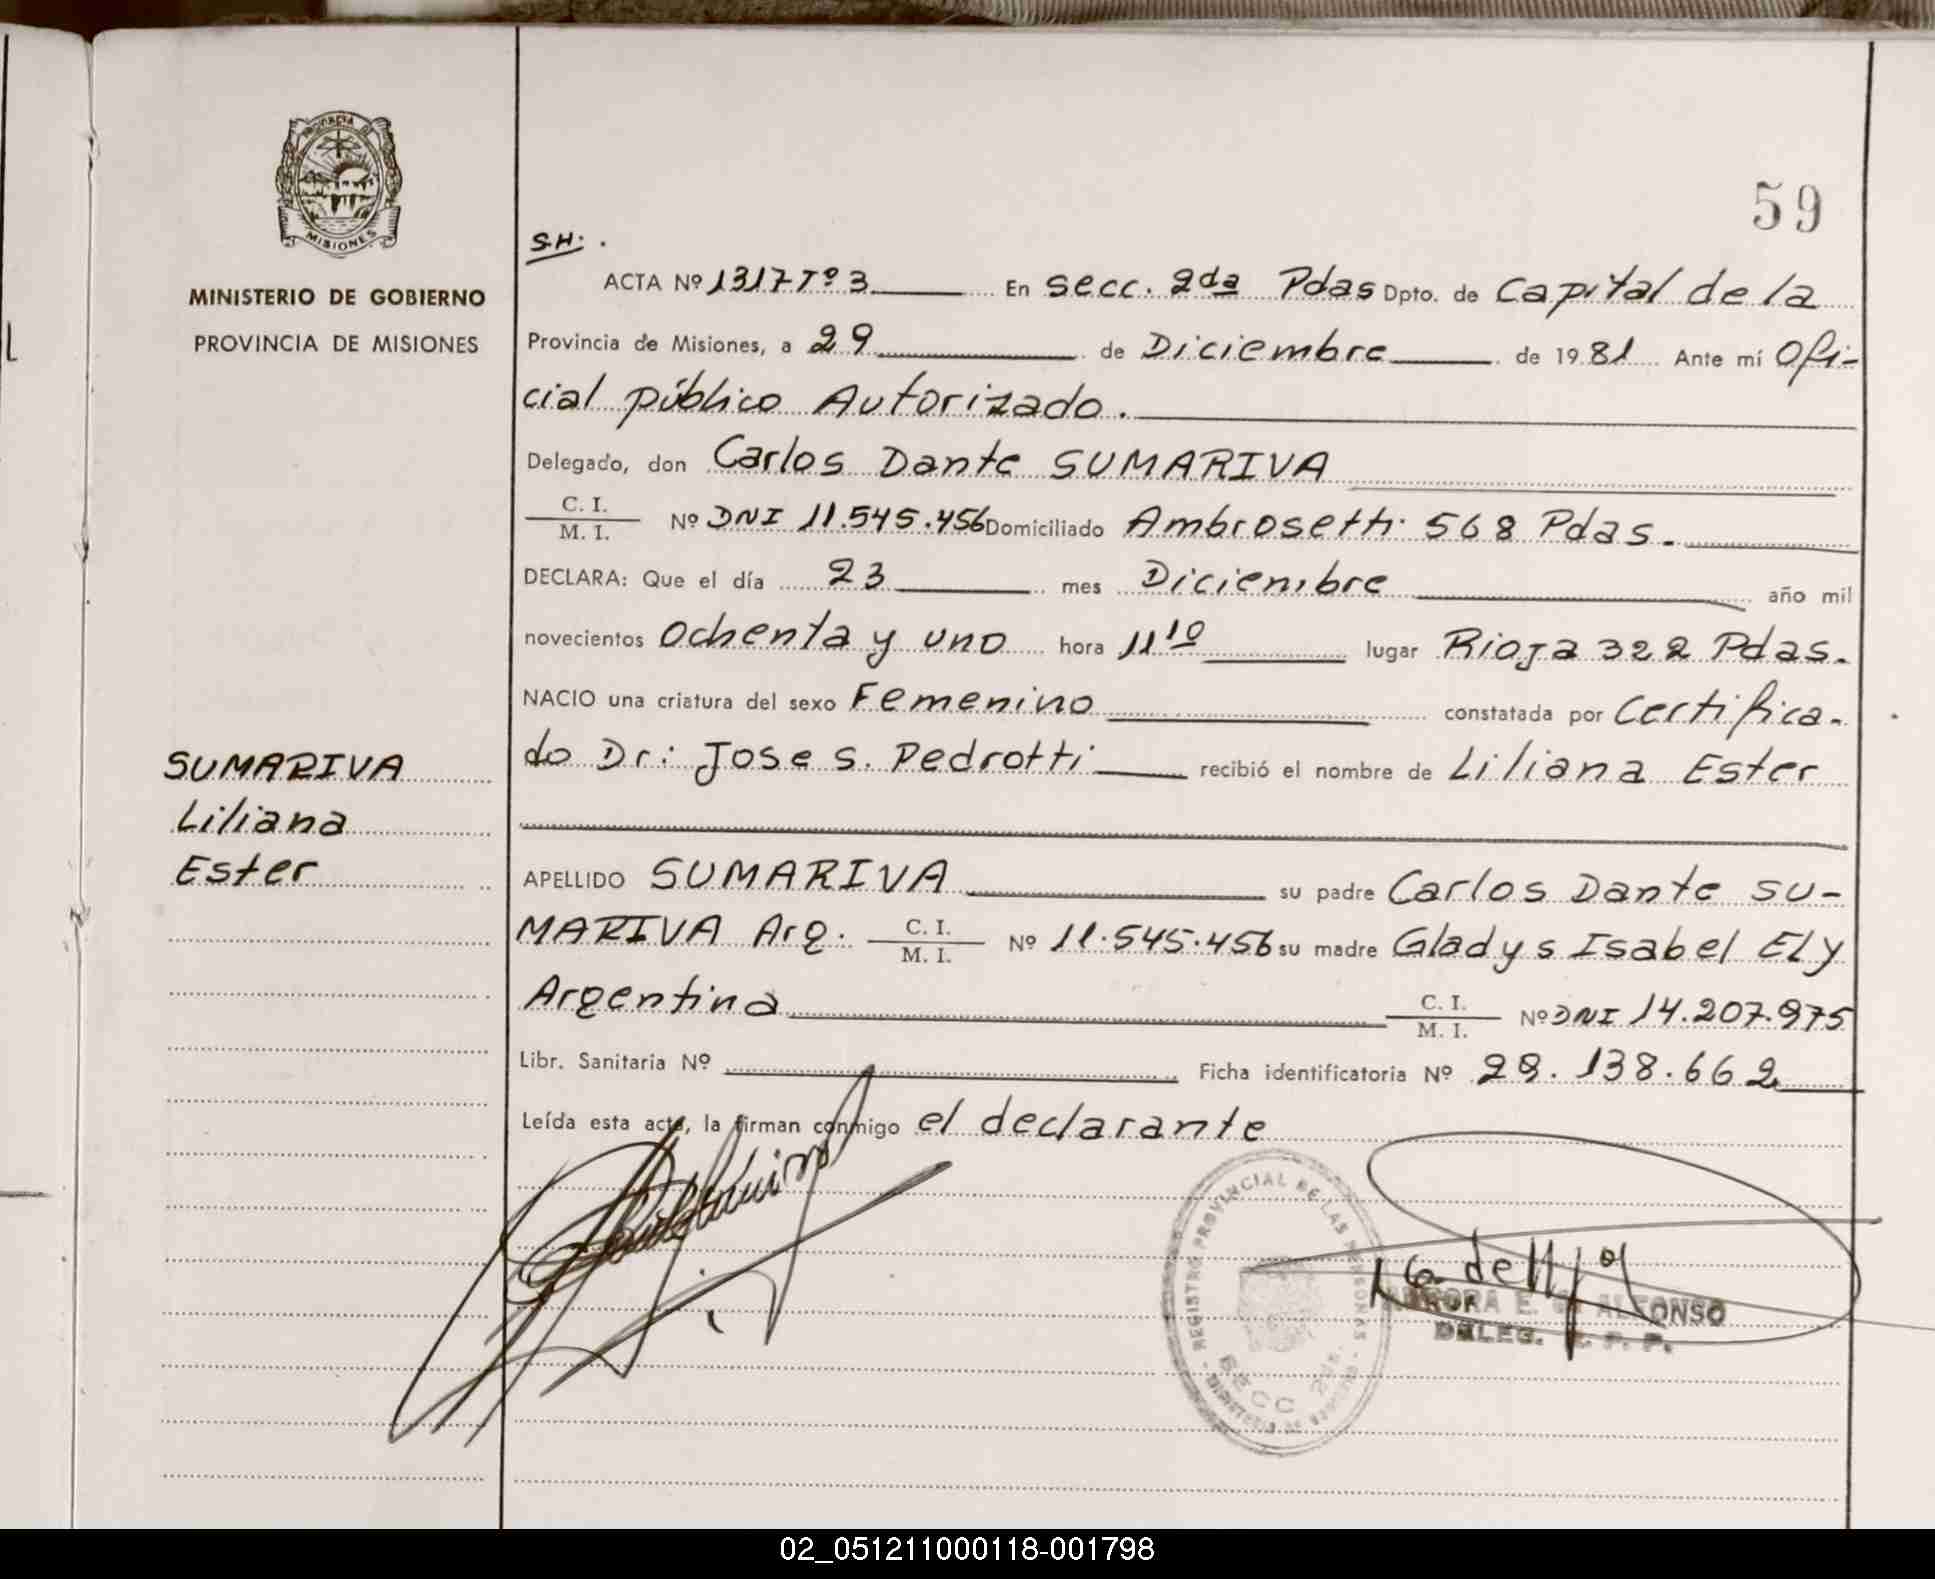 PROVINCIA DE
MISIONES
MINISTERIO DE GOBIERNO
PROVINCIA DE MISIONES
L
SUMARIVA
Liliana
Ester
59
S.H.
ACTA Nº 1317 Tº 3 En Secc. 2da Pdas Dpto. de Capital de la
Provincia de Misiones, a 29 de Diciembre de 1981 Ante mí Ofi-
cial público Autorizado.
Delegado, don Carlos Dante SUMARIVA
C. I.
M. I. Nº DNI 11.545.456 Domiciliado Ambrosetti 568 Pdas.
DECLARA: Que el día 23 mes Diciembre año mil
novecientos ochenta y uno hora 11 10 lugar Rioja 322 Pdas.
NACIO una criatura del sexo Femenino constatada por Certifica-
do Dr: Jose S. Pedrotti recibió el nombre de Liliana Ester
APELLIDO SUMARIVA su padre Carlos Dante SU-
MARIVA Arg. C. I. M. I. Nº 11.545.456 su madre Gladys Isabel ELY
Argentina C. I. M. I. Nº DNI 14.207.975
Libr. Sanitaria Nº Ficha identificatoria Nº 29.138.662
Leída esta acta, la firman conmigo el declarante
REGISTRO PROVINCIAL DE LAS PERSONAS
SECC 2da.
AURORA E. ALFONSO
DELEG. R. P. P.
02_051211000118-001798